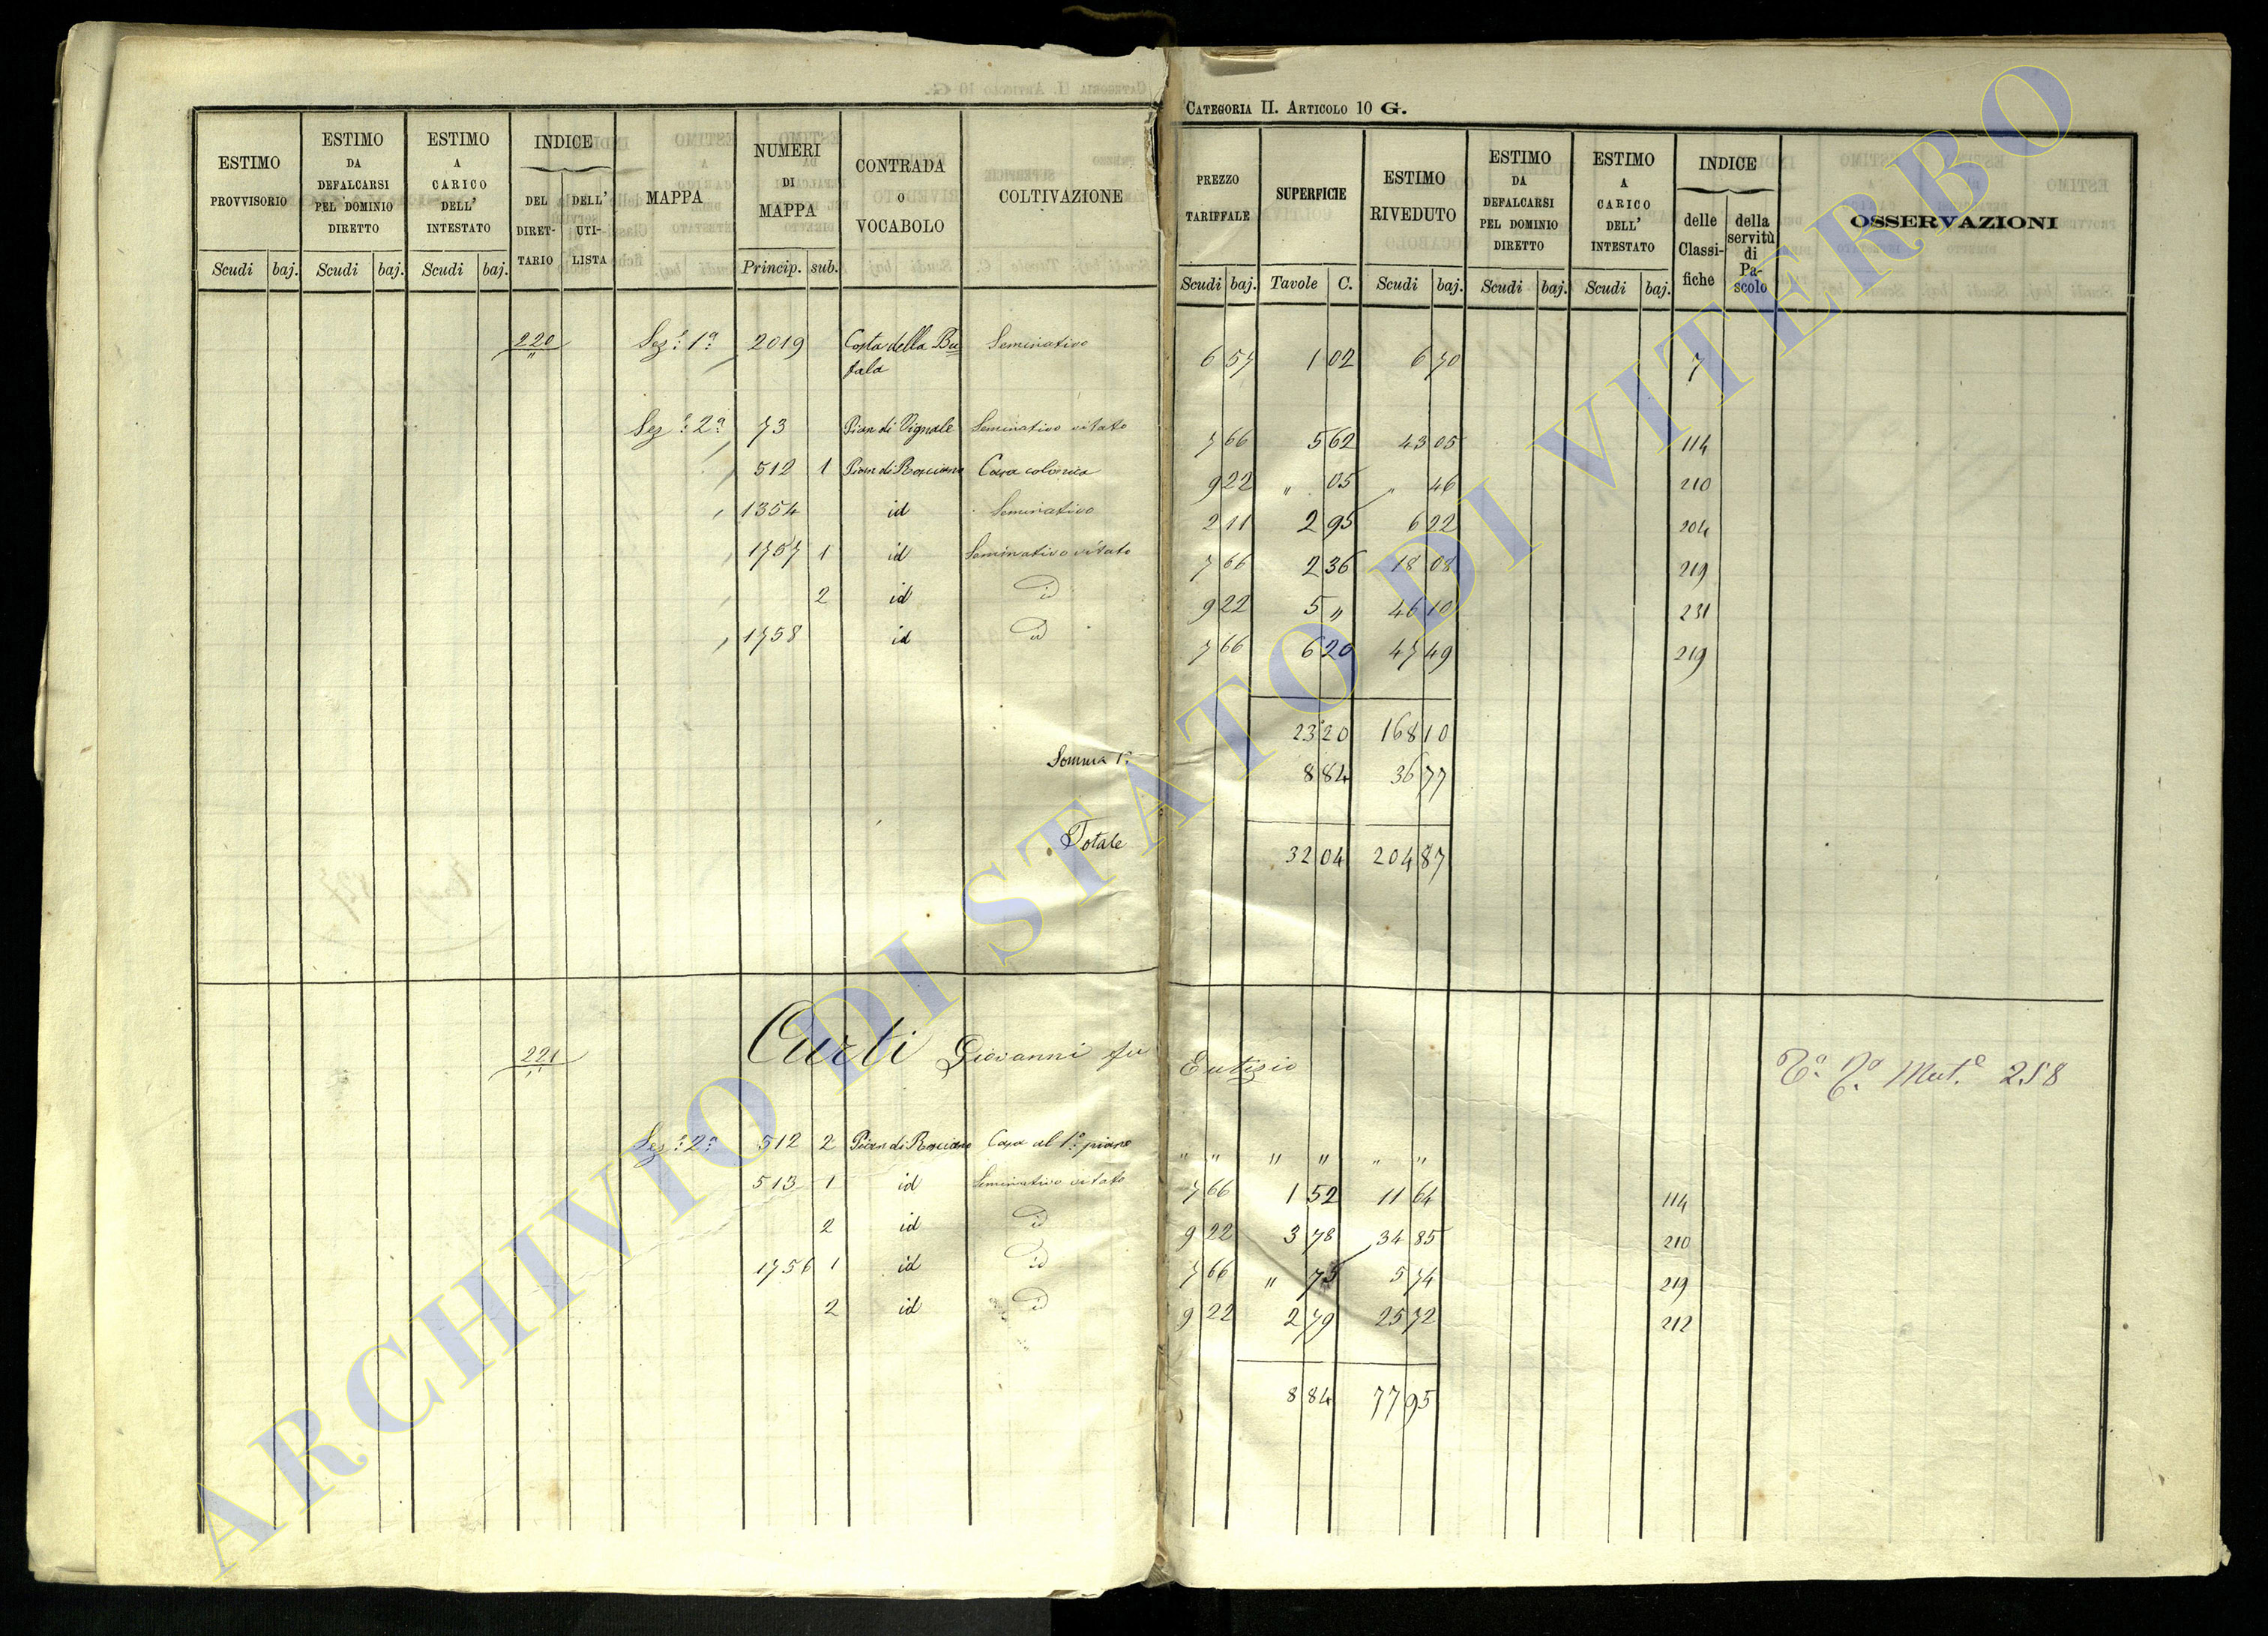 CATEGORIA II. ARTICOLO 10 G.
ESTIMO PROVVISORIO | ESTIMO DA DEFALCARSI PEL DOMINIO DIRETTO | ESTIMO A CARICO DELL' INTESTATO | INDICE | MAPPA | NUMERI DI MAPPA | CONTRADA O VOCABOLO | COLTIVAZIONE | PREZZO TARIFFALE | SUPERFICIE | ESTIMO RIVEDUTO | ESTIMO DA DEFALCARSI PEL DOMINIO DIRETTO | ESTIMO A CARICO DELL' INTESTATO | INDICE | OSSERVAZIONI
DEL DIRETTARIO | DELL' UTILISTA | delle Classifiche | della servitù di Pascolo
Scudi baj. | Scudi baj. | Scudi baj. | Princip. sub. | Scudi baj. | Tavole C. | Scudi baj. | Scudi baj. | Scudi baj.
220 Sez.e 1a 2019 Costa della Bu= Seminativo 6 57 1 02 6 70 7
fala
Sez.e 2a 73 Pian di Vignale Seminativo vitato 7 66 5 62 43 05 114
512 1 Pian di Casa colonica 9 22 " 05 " 46 210
1354 id Seminativo 2 11 2 95 6 22 204
1757 1 id Seminativo vitato 7 66 2 36 18 08 219
2 id id 9 22 5 " 46 10 231
1758 id id 7 66 6 20 47 49 219
23 20 168 10
Somma 1a 8 84 36 77
Totale 32 04 204 87
221 Curti Giovanni fu Eutizio Mut.e 258
Sez.e 2a 512 2 Pian di Casa al 1o piano " " " " " "
513 1 id Seminativo vitato 7 66 1 52 11 64 114
2 id id 9 22 3 78 34 85 210
1756 1 id id 7 66 " 75 5 74 219
2 id id 9 22 2 79 25 72 212
8 84 77 95
ARCHIVIO DI STATO DI VITERBO